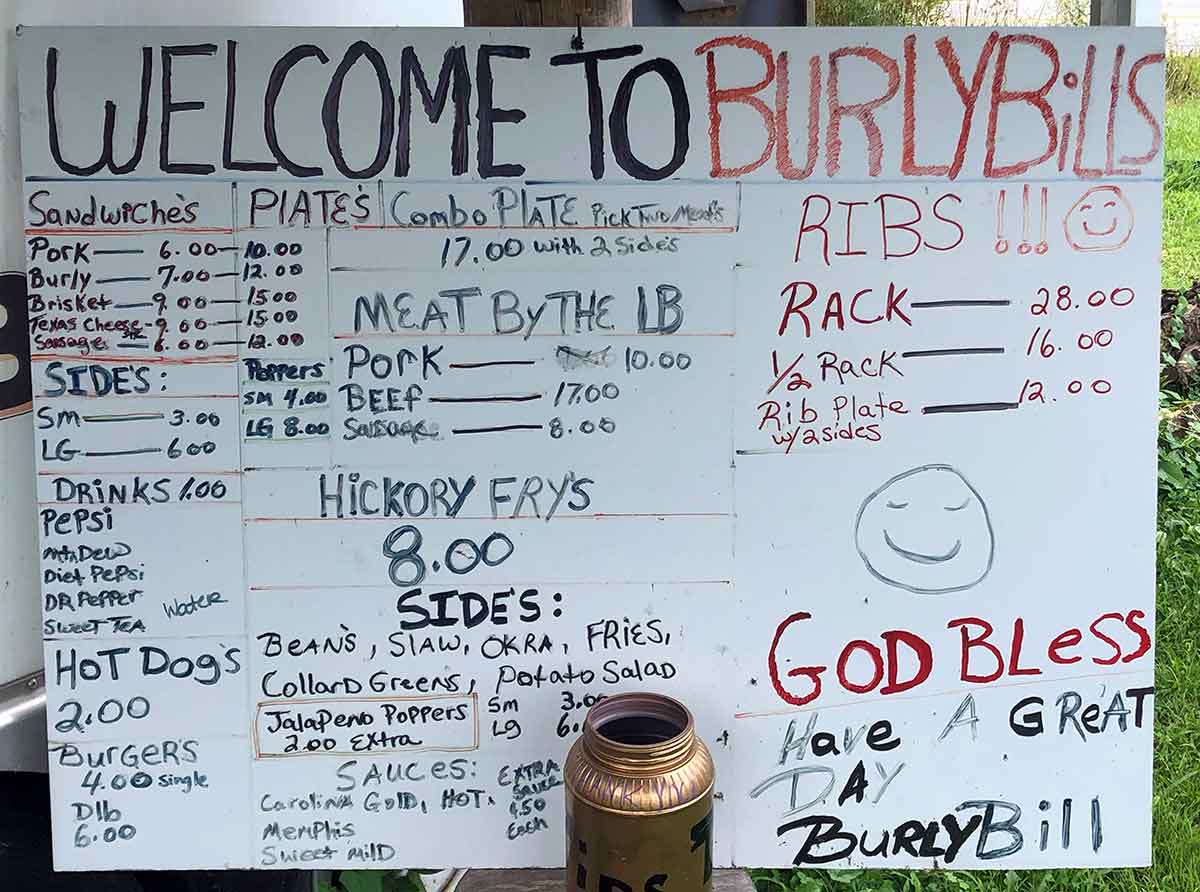 WELCOME TO BURLYBiLLS
SANDWICHE'S
Pork — 6.00 — 10.00
Burly — 7.00 — 12.00
Brisket — 9.00 — 15.00
Texas Cheese - 9.00 — 15.00
Sausage — 6.00 — 12.00
PLATE'S
Poppers
SM 4.00
LG 8.00
SIDE'S:
SM — 3.00
LG — 6.00
DRINKS 1.00
PEPSI
Mtn Dew
Diet PEPSi
DR PEPPER
Water
SWEET TEA
HOT DOG'S
2.00
BURGER'S
4.00 single
Dlb
6.00
Combo PLATE PICK TWO Meat's
17.00 with 2 Side's
MEAT By THE LB
PORK — 10.00
BEEF — 17.00
Sausage — 8.00
HICKORY FRY'S
8.00
SIDE'S:
BEAN'S, SLAW, OKRA, FRIES,
CollarD GREENS, Potato SALAD
JALAPENO POPPERS
2.00 EXTRA
Sm 3.00
LG 6.
SAUCES:
Carolina GOLD, HOT.
Memphis
Sweet Mild
EXTRA
SAUCE
.50
Each
RIB'S !!!
RACK — 28.00
1/2 Rack — 16.00
Rib Plate — 12.00
w/2 sides
GOD BLeSS
Have A GREAT
DAY
BURLYBill